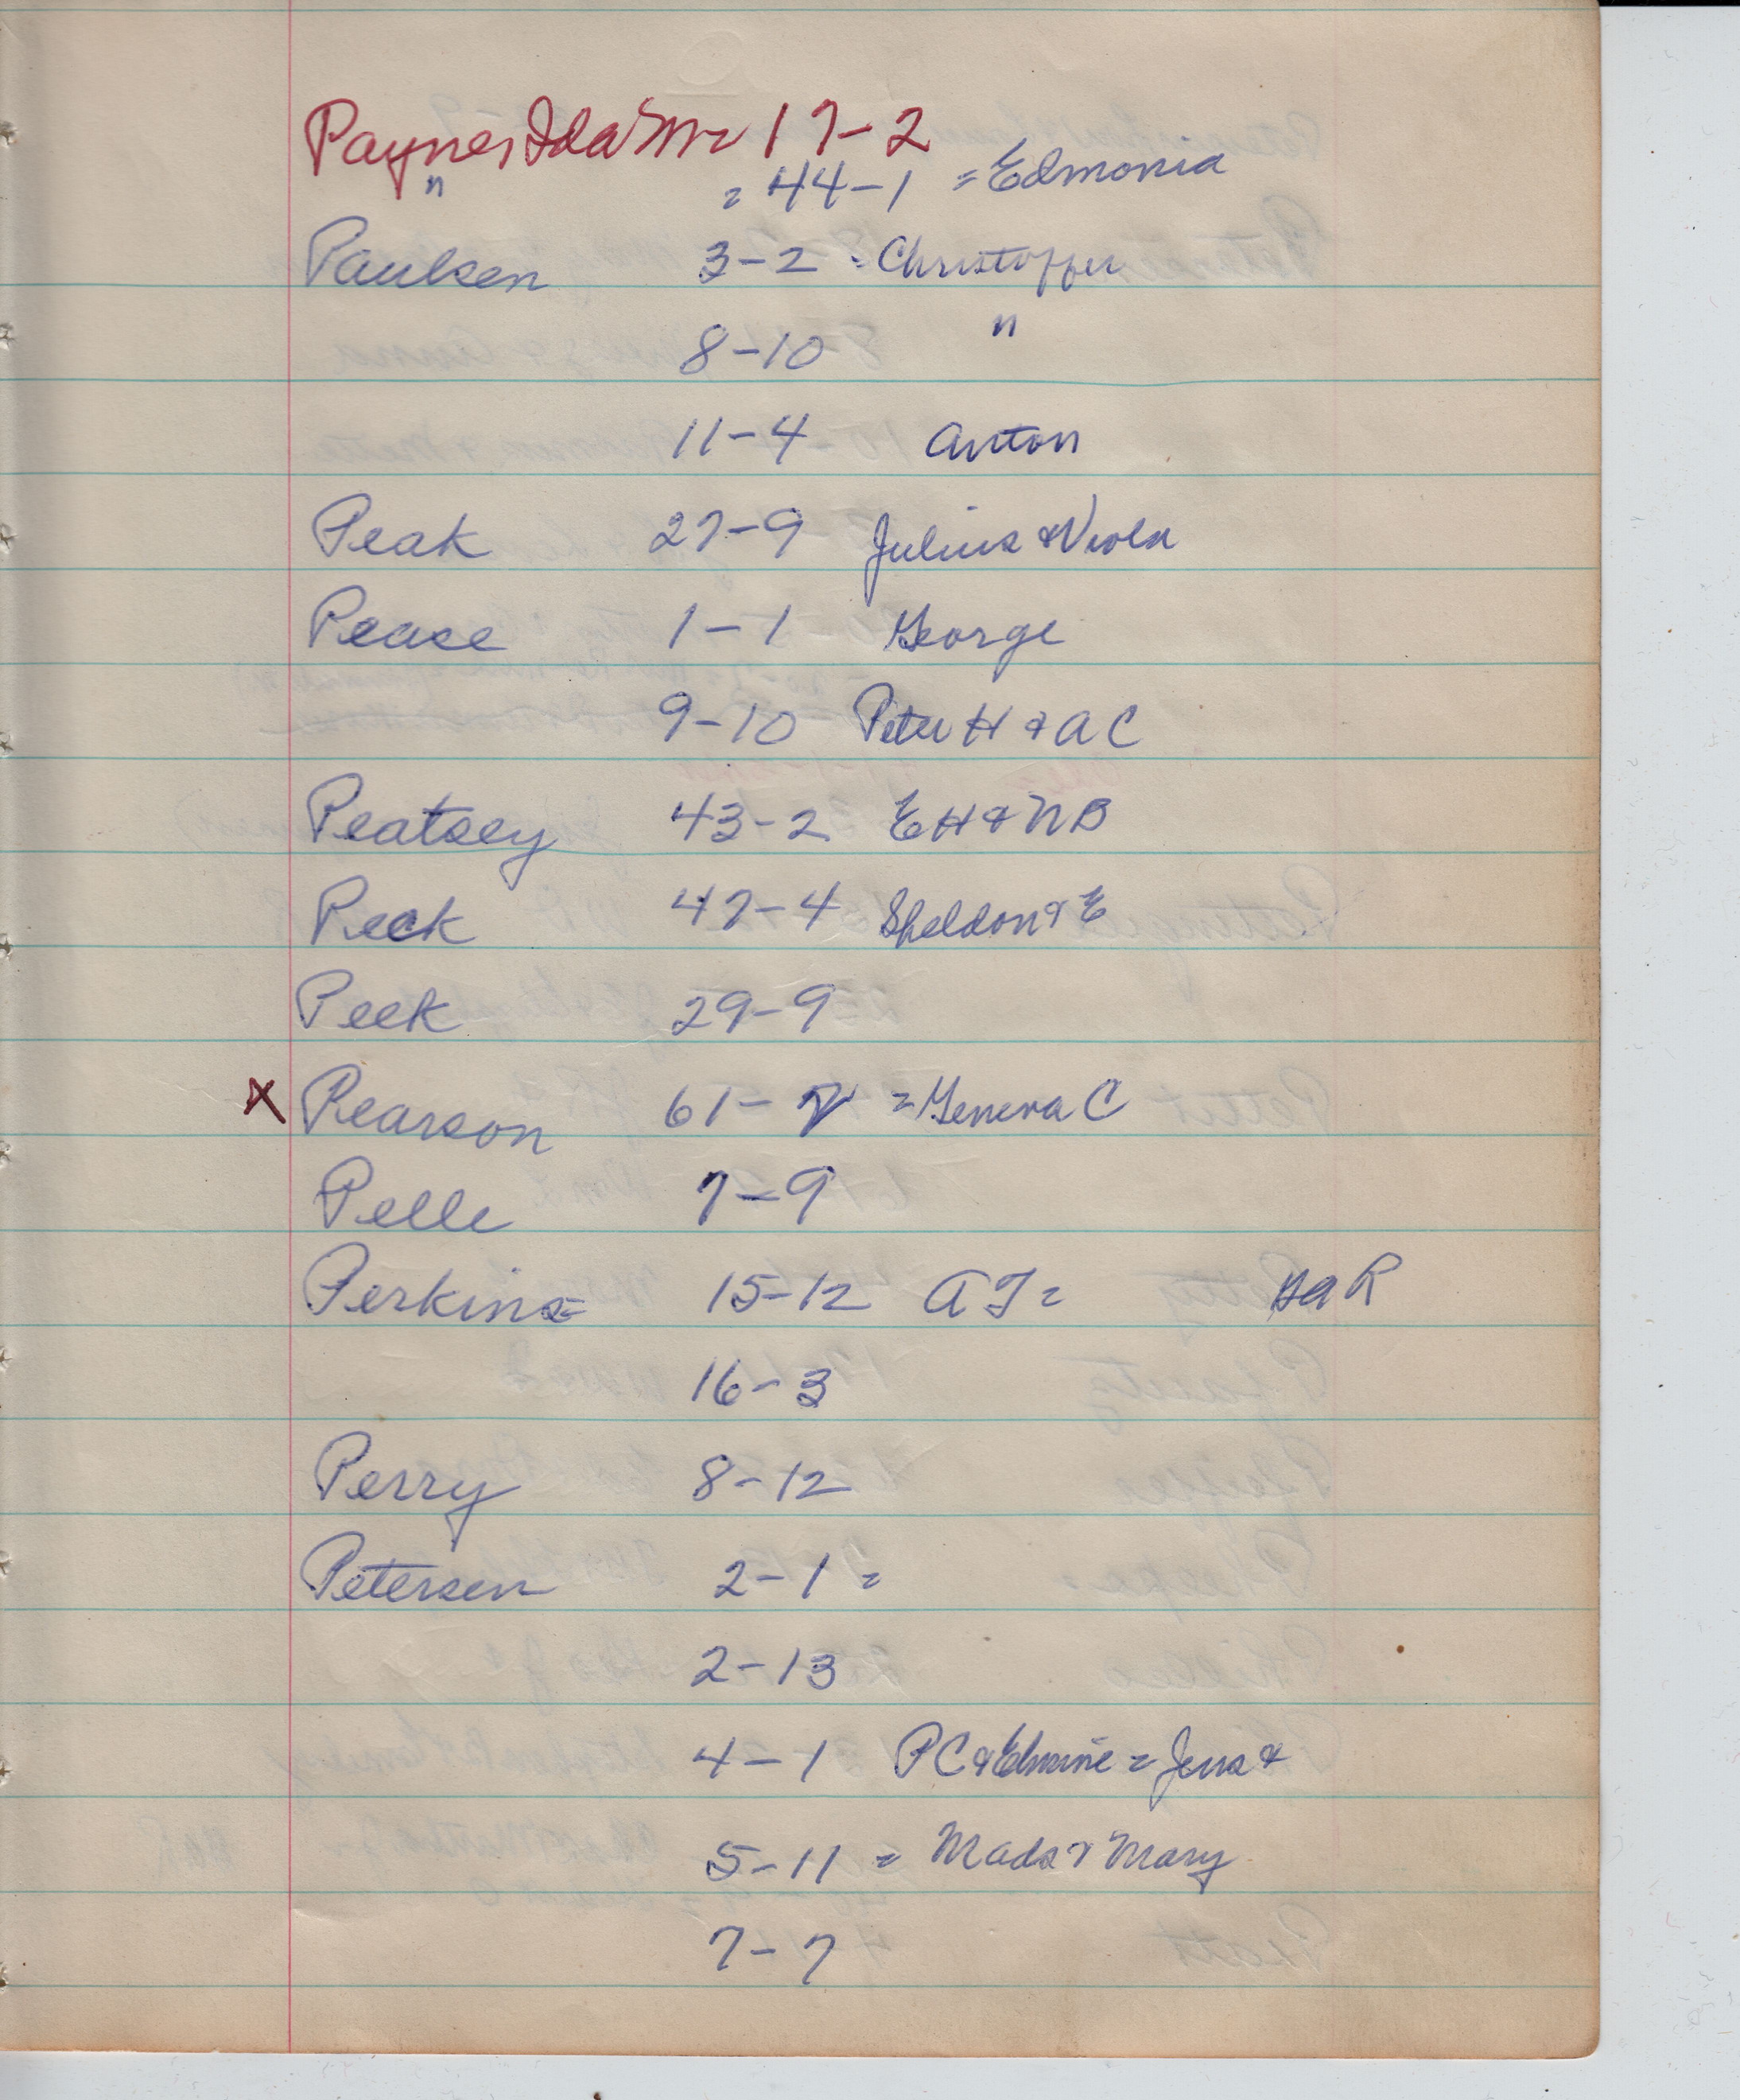 Payne, Ida M = 17-2
" = 44-1 = Edmonia
Paulsen 3-2 = Christoffer
8-10 "
11-4 Anton
Peak 27-9 Julius & Viola
Pease 1-1 George
9-10 Peter H & A C
Peatsey 43-2 E H & N B
Peck 47-4 Sheldon & E
Peek 29-9
X Pearson 61- = Geneva C
Pelle 7-9
Perkins 15-12 A J = DAR
16-3
Perry 8-12
Petersen 2-1 =
2-13
4-1 P C & = Jens &
5-11 = Mads & Mary
7-7